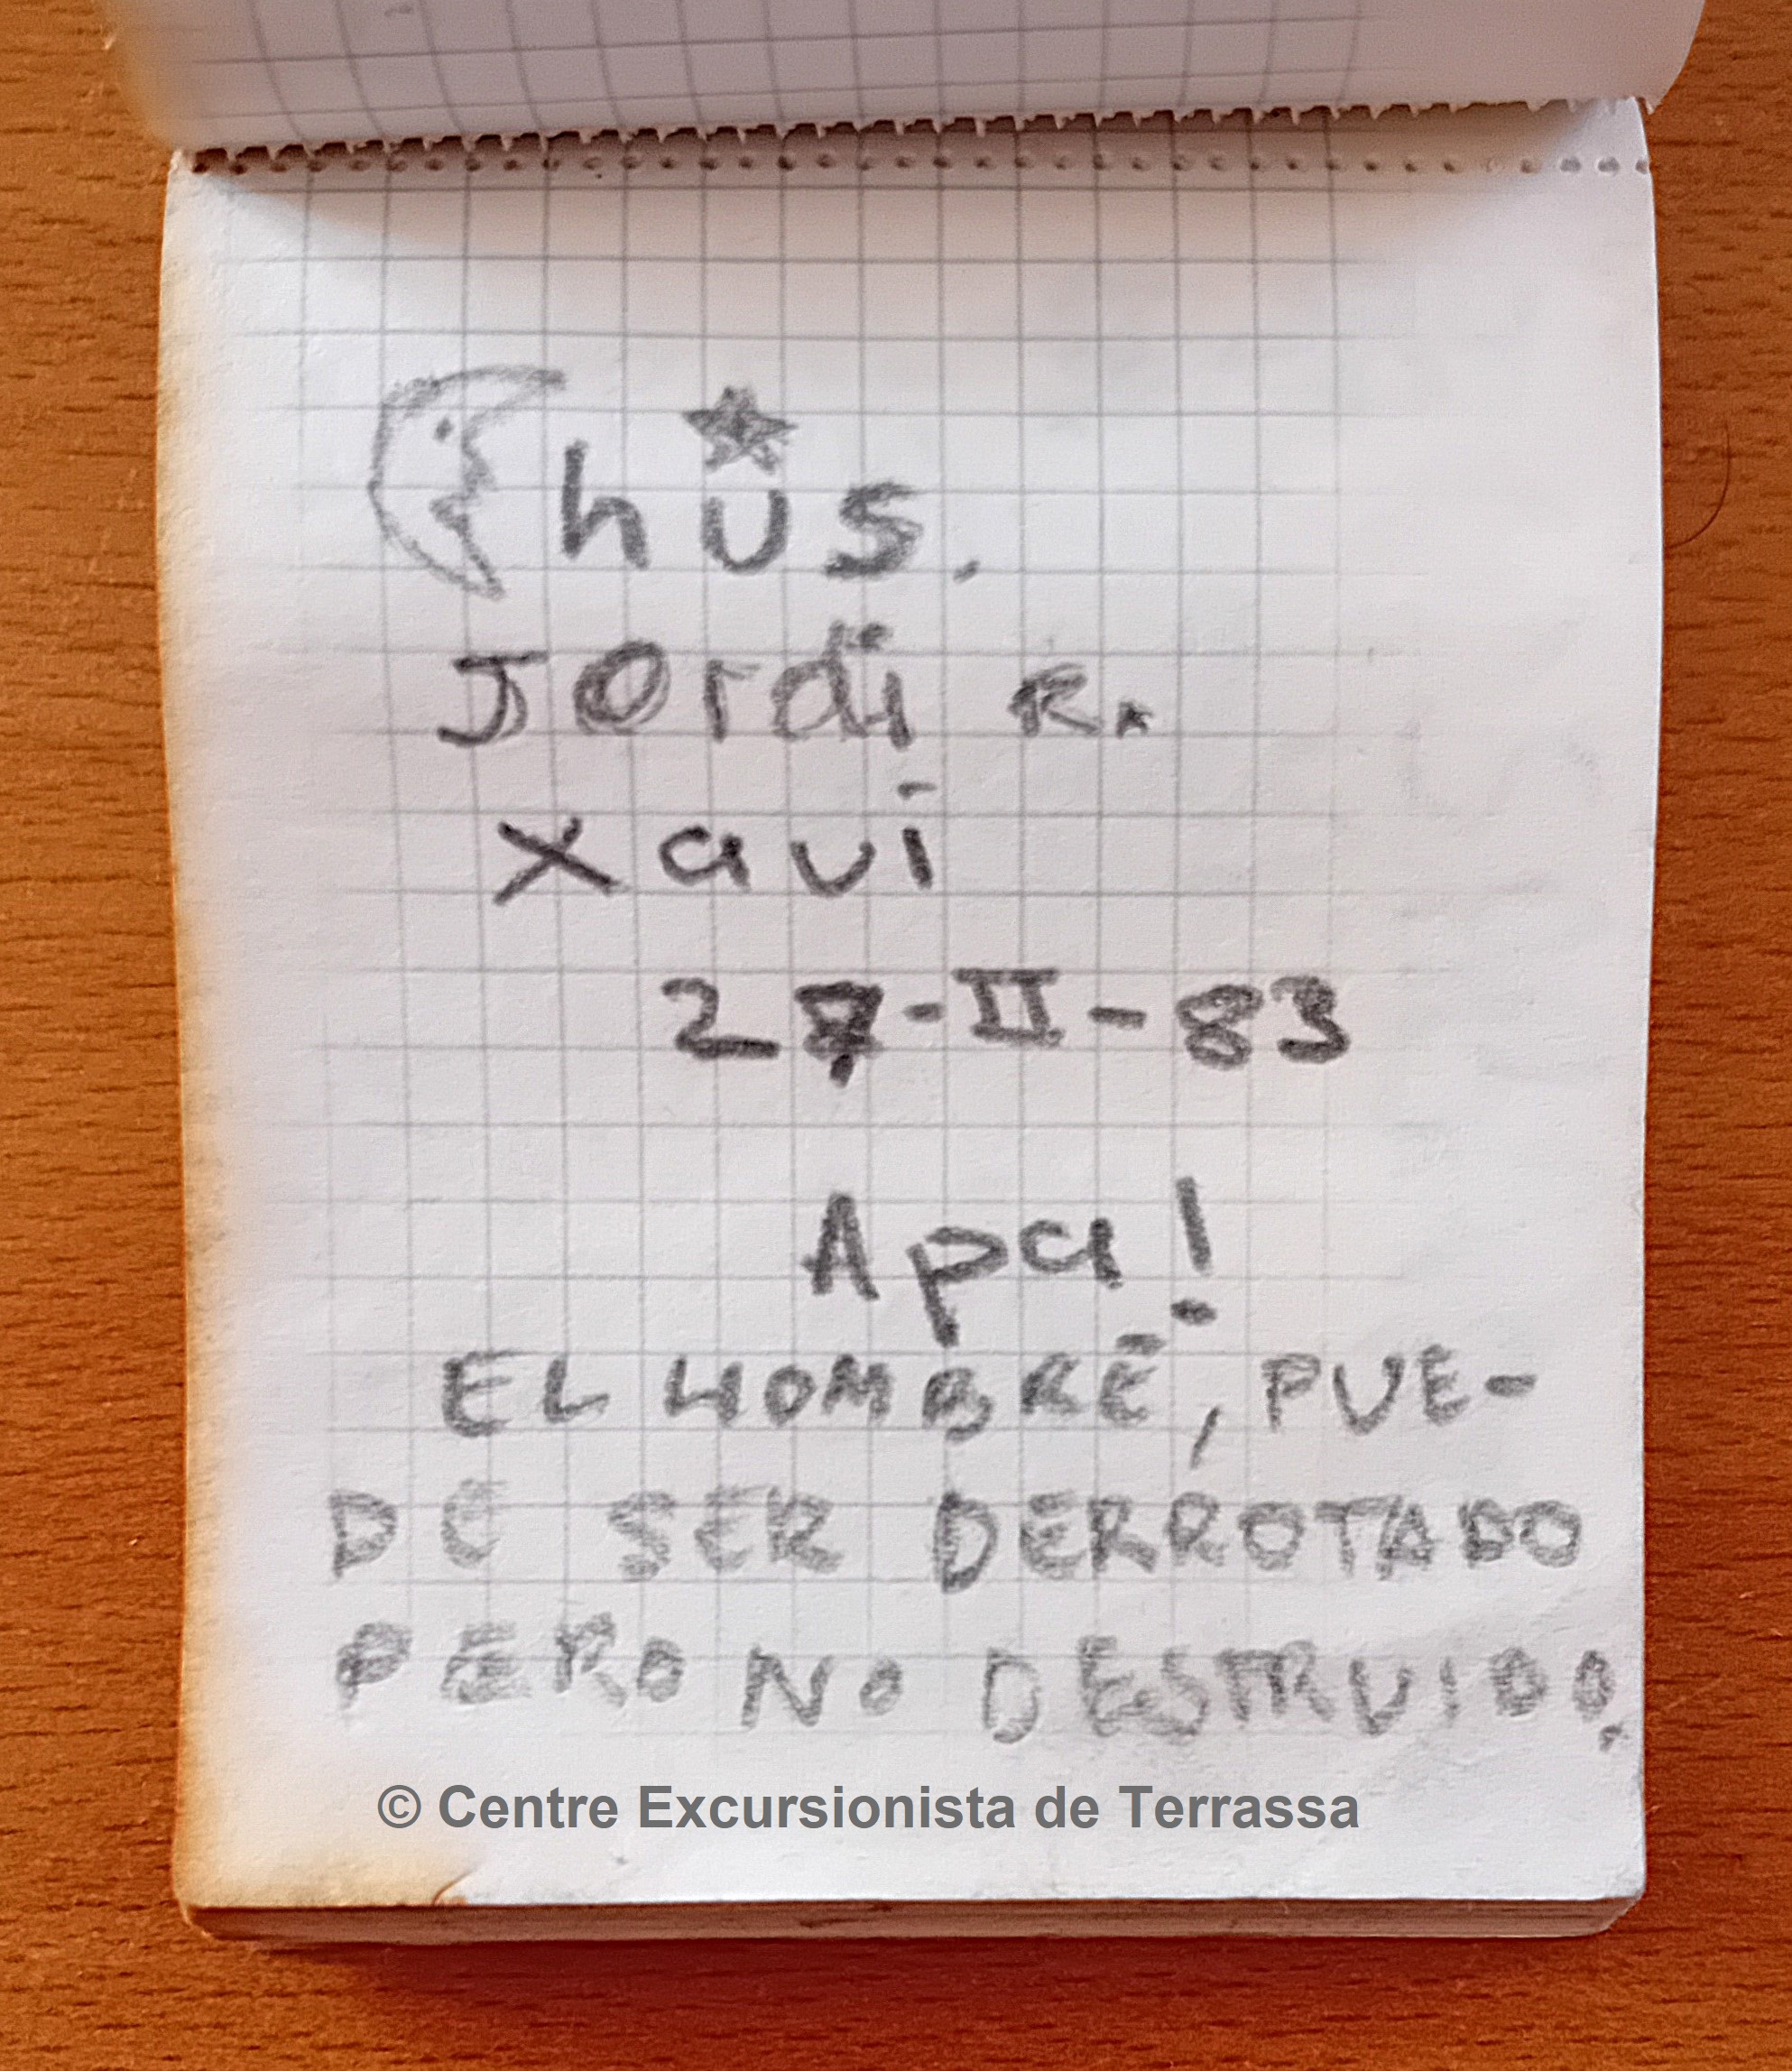 Chus.
Jordi R.
Xavi
27-II-83
Apa!
EL HOMBRE, PUE-
DE SER DERROTADO
PERO NO DESTRUIDO.
© Centre Excursionista de Terrassa